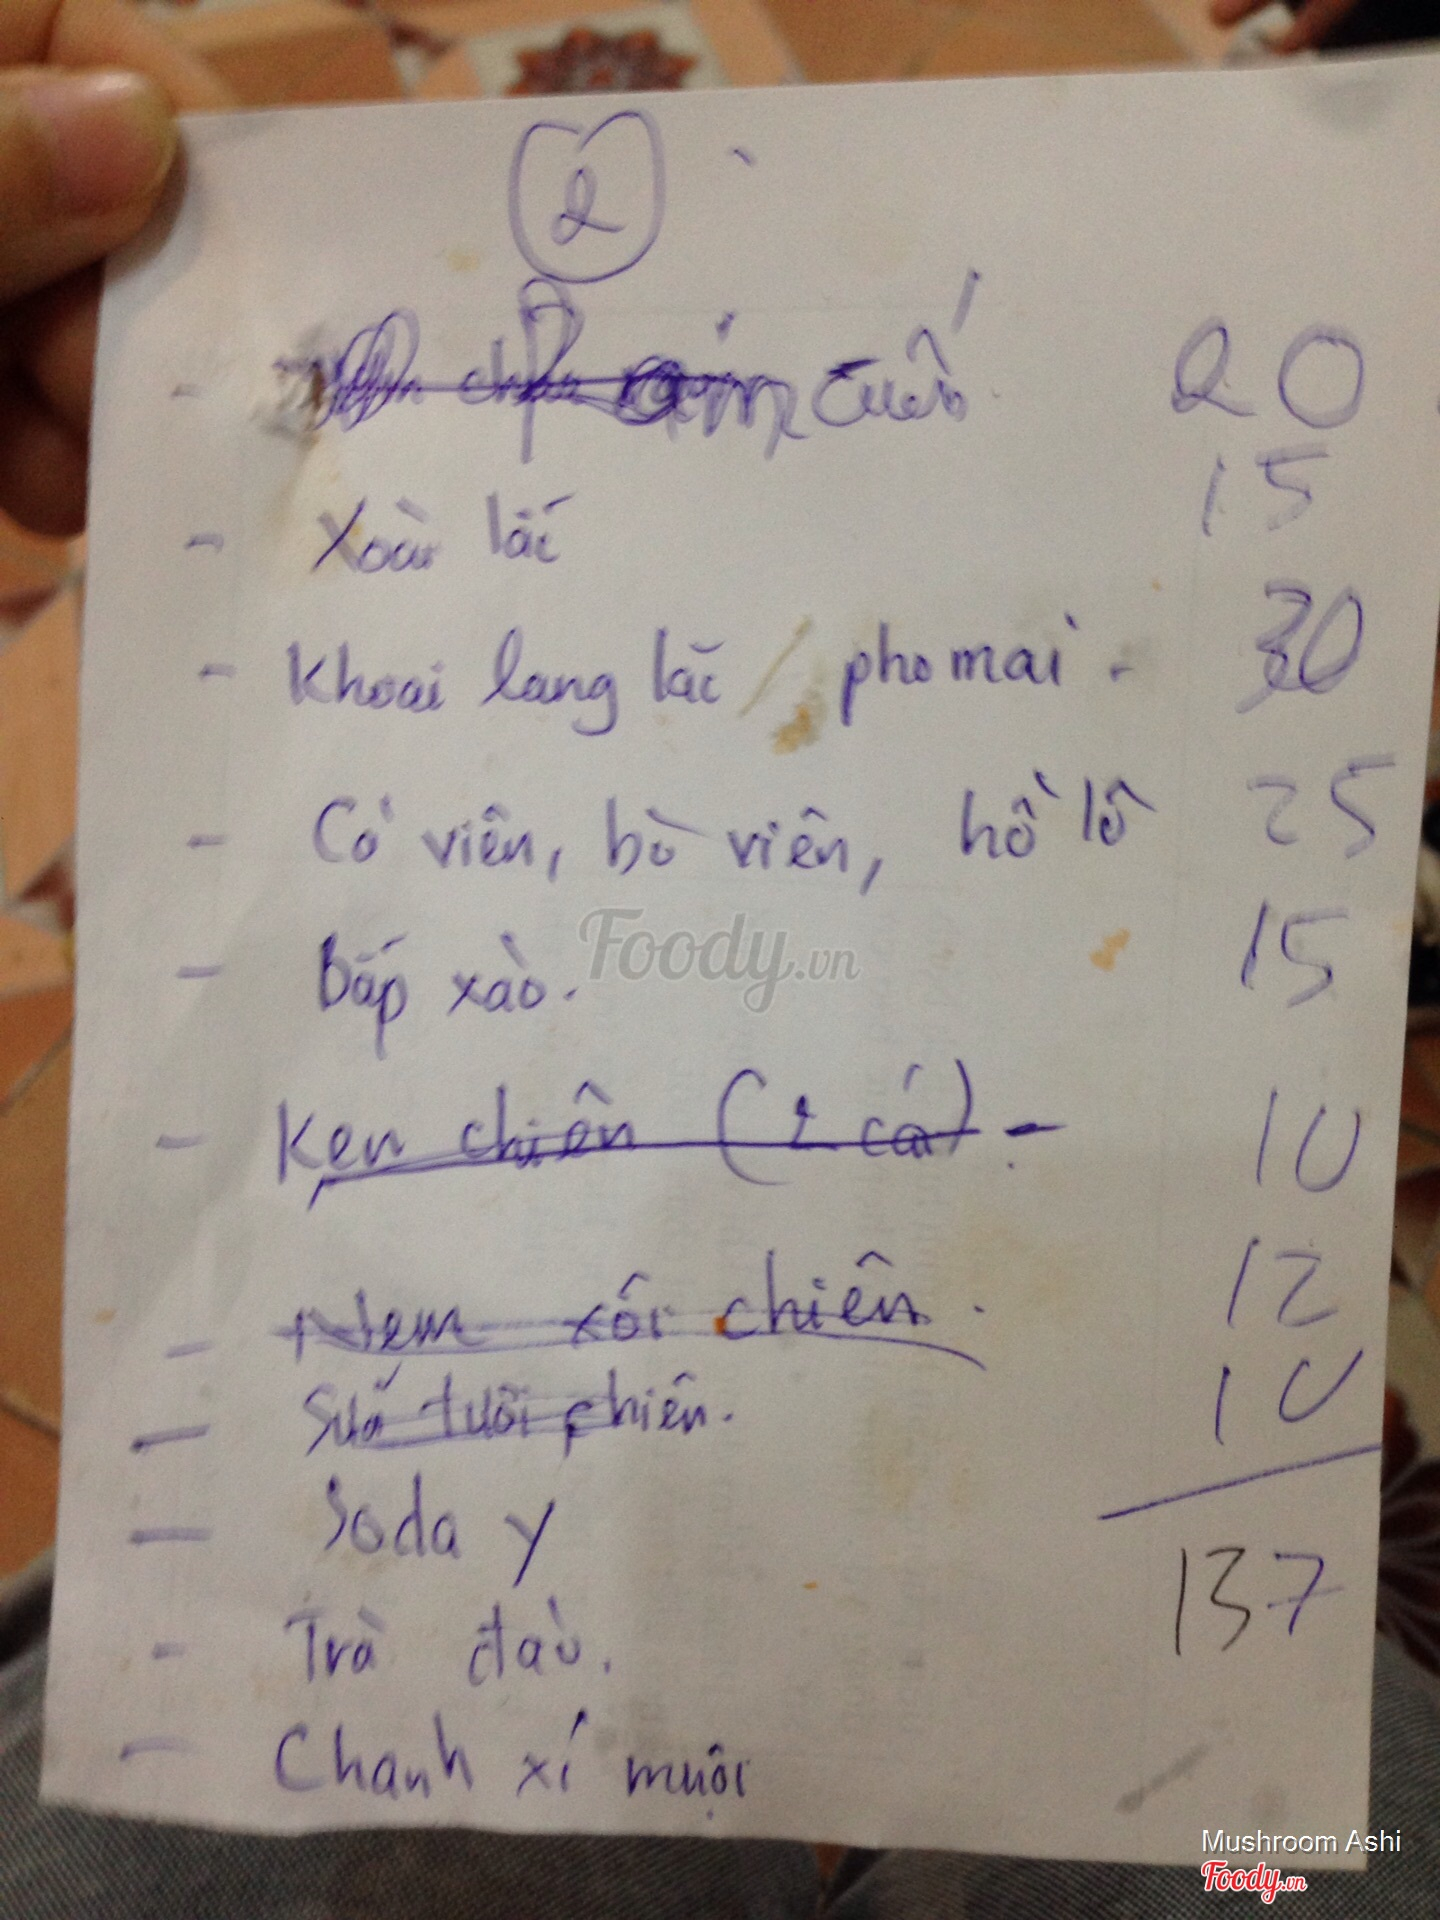 2
cuốn 20
- Xoài lắc 15
- Khoai lang lắc / phomai. 30
- Cá viên, bò viên, hồ lô 25
- Bắp xào. 15
- Kem chiên (2 cái) - 10
- Nem xôi chiên. 12
- Sữa tươi chiên. 10
- Soda Ý
137
- Trà đào.
- Chanh xí muội
Foody.vn
Mushroom Ashi
Foody.vn